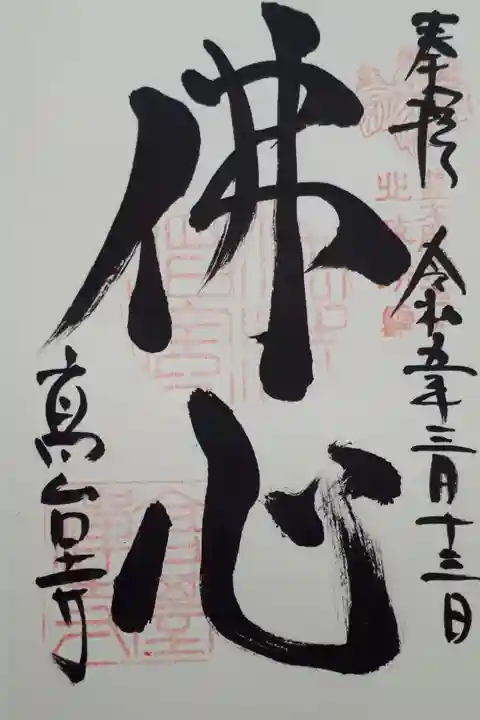 奉拝
令和五年三月十三日
佛心
高台寺